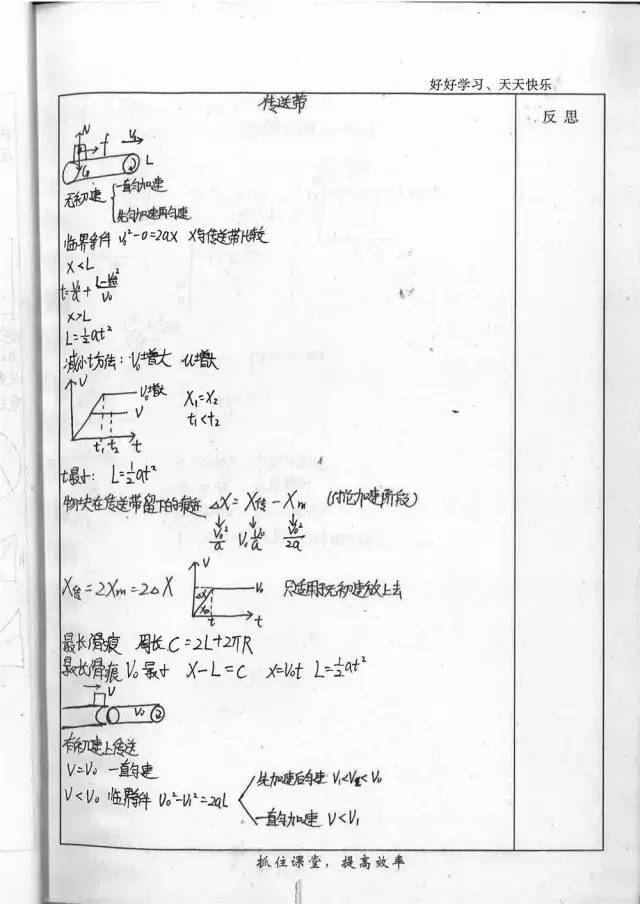 好好学习、天天快乐
传送带
反思
N f V₀
G L
无初速 { 一直匀加速
先匀加速再匀速
临界条件 V₀²-0=2ax X与传送带L比较
X<L
t=V₀/a+(L-V₀²/2a)/V₀
X>L
L=½at²
减小t方法:V₀增大 u增大
V
V₀增大
V
t₁ t₂ t
X₁=X₂
t₁<t₂
t最小: L=½at²
物块在传送带留下的痕迹 △X=X传-Xm (讨论加速阶段)
V₀²/a V₀·V₀/a V₀²/2a
X传=2Xm=2△X
V
△X V₀
Xm
t t
只适用于无初速放上去
最长滑痕 周长C=2L+2πR
最长滑痕V₀最小 X-L=C x=V₀t L=½at²
V
V₀
有初速上传送
V=V₀ 一直匀速
V<V₀ 临界条件 V₀²-V₁²=2aL
先加速后匀速 V₁<V<V₀
一直匀加速 V<V₁
抓住课堂,提高效率